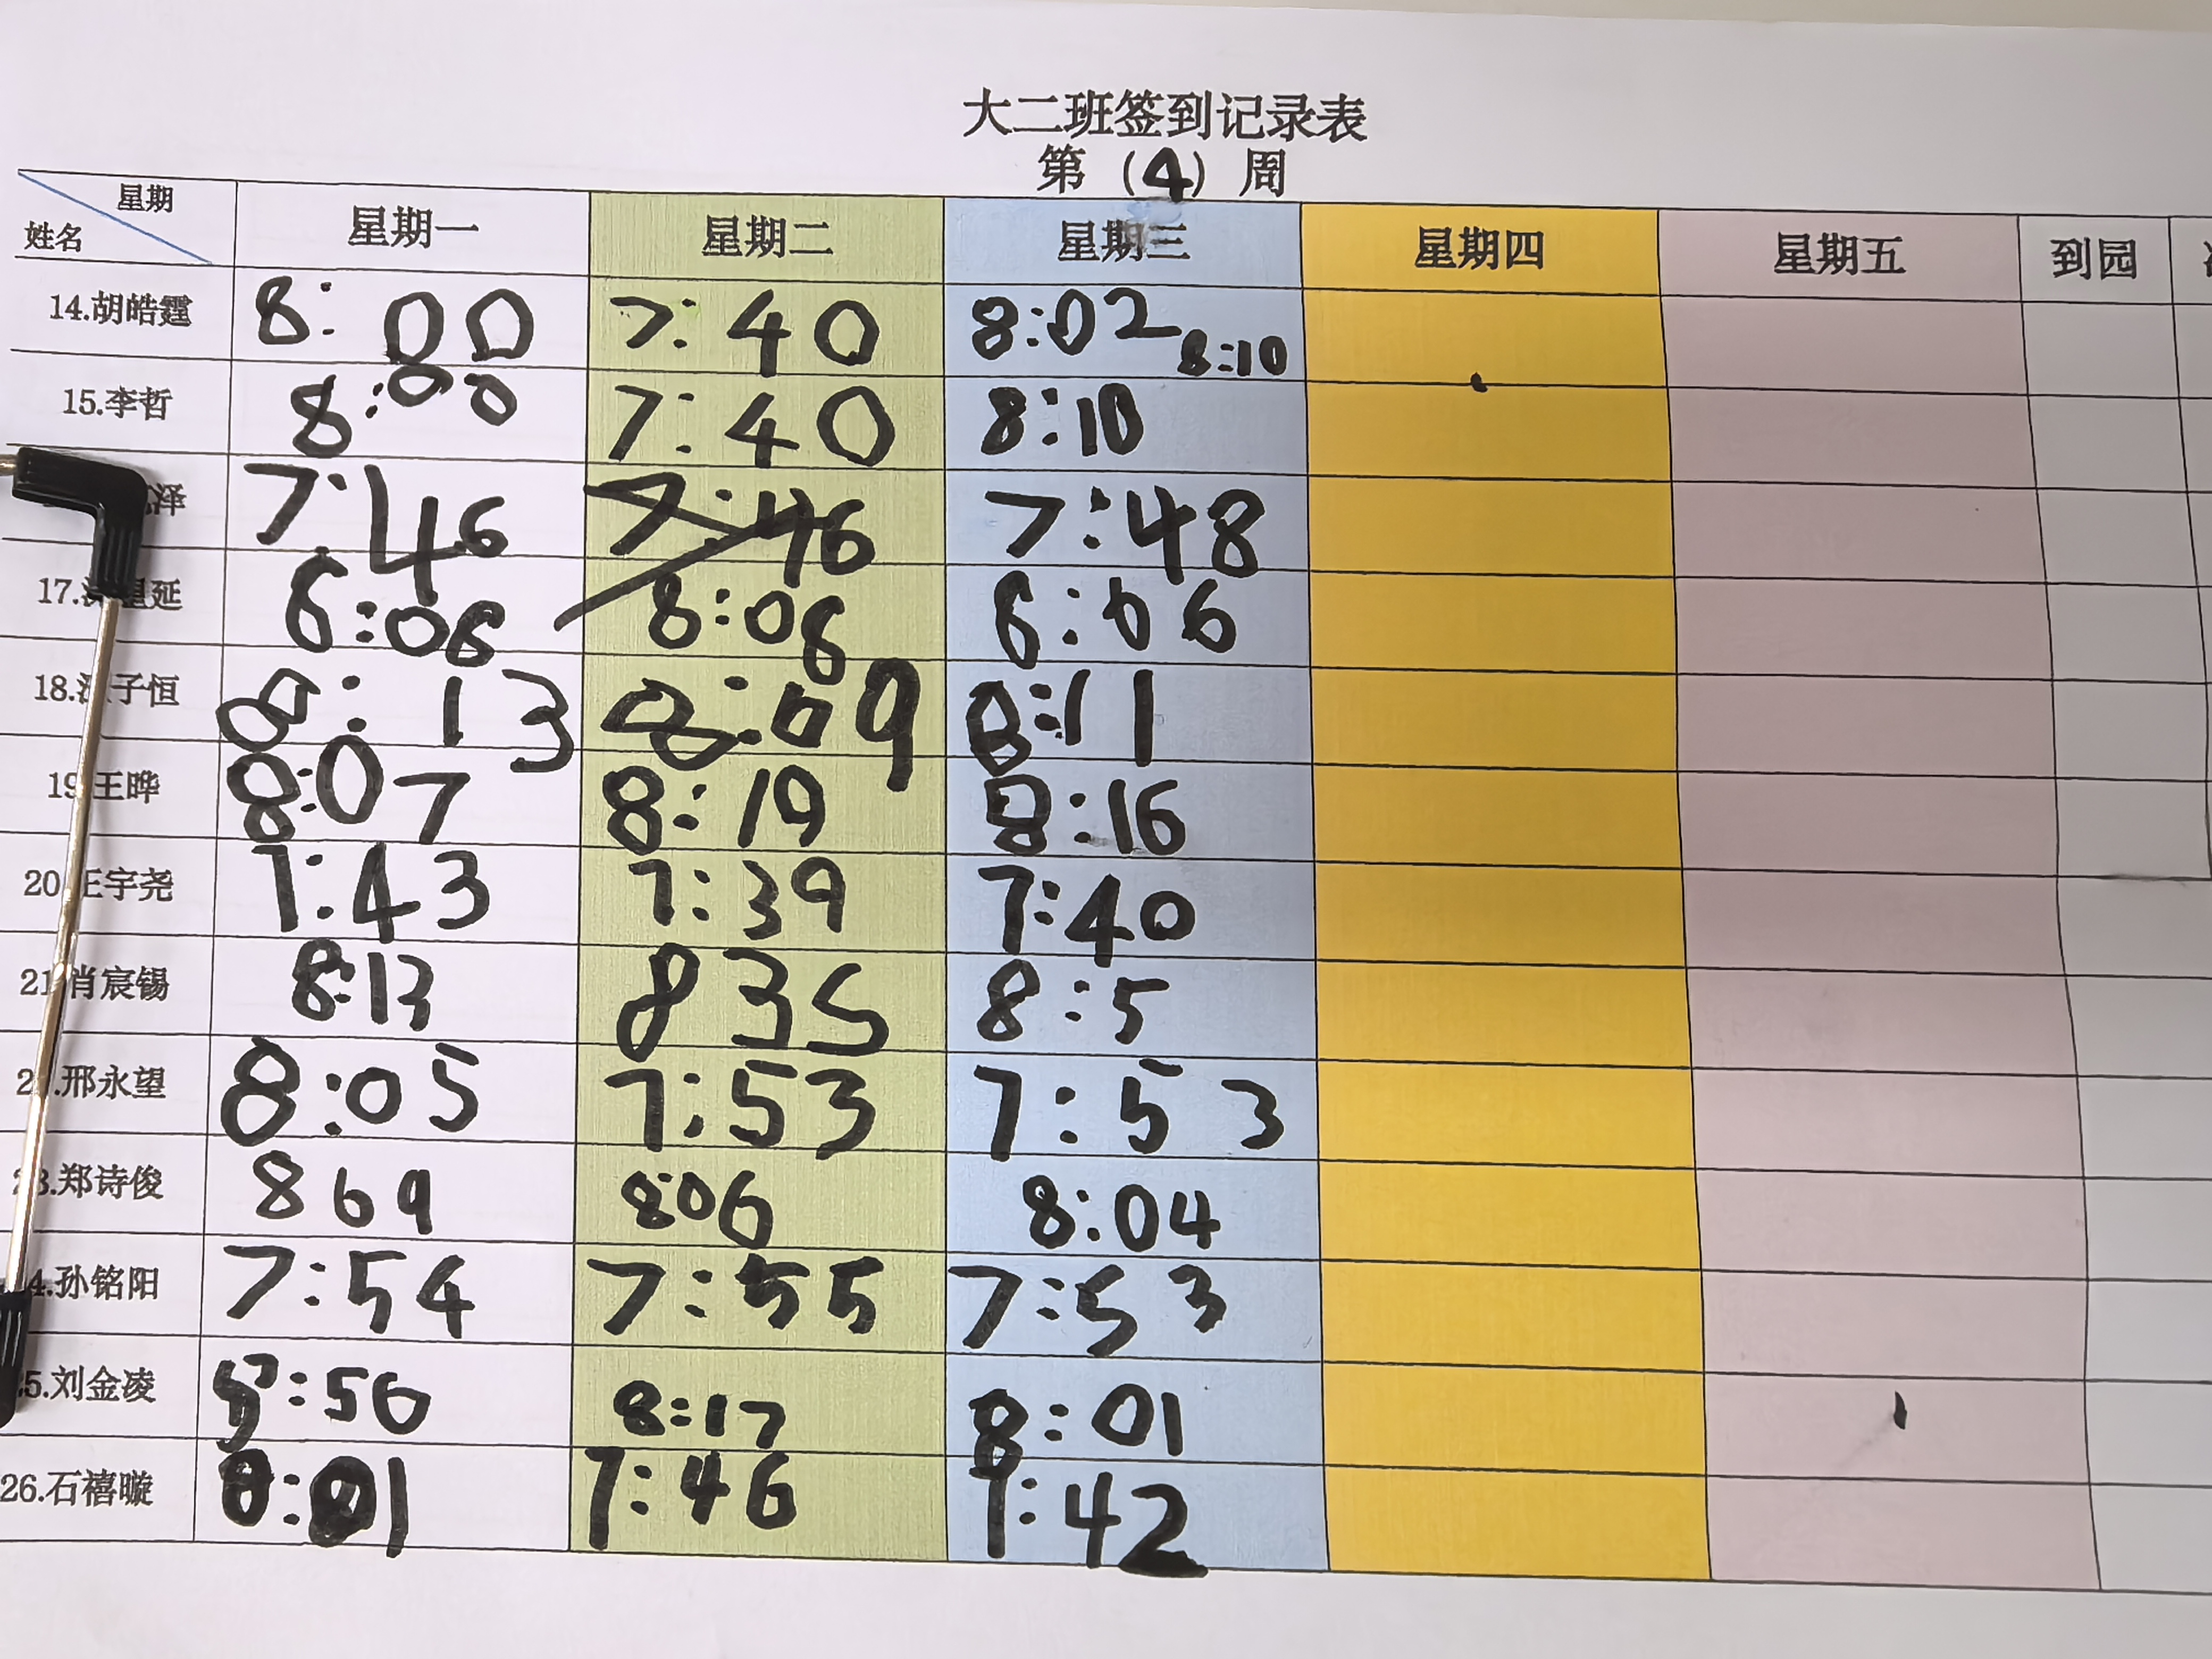 大二班签到记录表
第（4）周
星期 姓名 星期一 星期二 星期三 星期四 星期五 到园
14.胡皓霆 8:00 7:40 8:02 8:10
15.李哲 8:00 7:40 8:10
泽 7:46 7:46 7:48
17. 延 8:08 8:08 8:06
18. 子恒 8:13 8:09 8:11
19.王晔 8:07 8:19 8:16
20.王宇尧 7:43 7:39 7:40
21.肖宸锡 8:13 8 35 8:5
.邢永望 8:05 7:53 7:53
23.郑诗俊 8 69 8:06 8:04
24.孙铭阳 7:54 7:55 7:53
25.刘金凌 :50 8:17 8:01
26.石禧暶 8:01 7:46 7:42